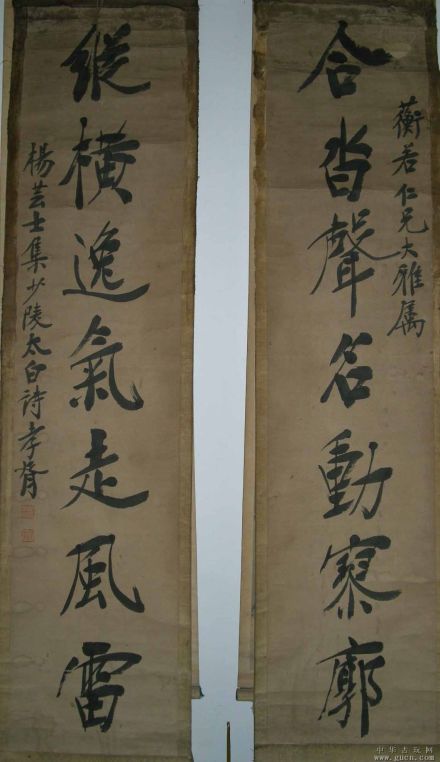 蘅若仁兄大雅属
合沓聲名動寥廓
縱橫逸氣走風雷
楊芸士集少陵太白詩 孝胥
中华古玩网
www.gucn.com